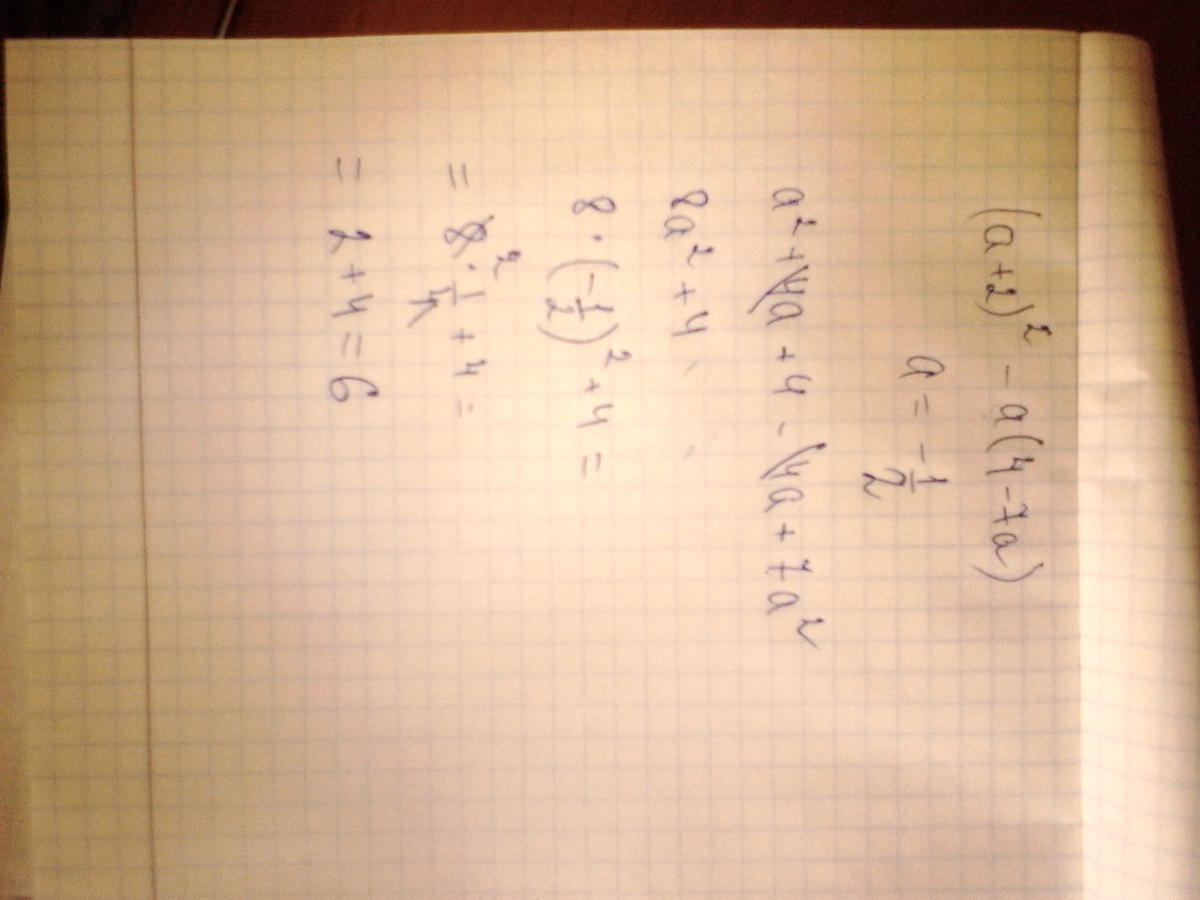 (a+2)² - a(4-7a)
a = -1/2
a² + 4a + 4 - 4a + 7a²
8a² + 4
8 · (-1/2)² + 4 =
= 8² · 1/4 + 4 =
= 2 + 4 = 6